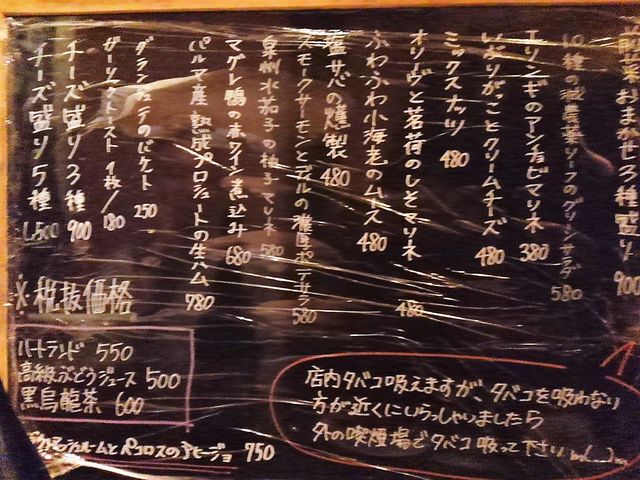 前菜おまかせ3種盛り 900
10種の減農薬リーフのグリーンサラダ 580
エリンギのアンチョビマリネ 380
いぶりがことクリームチーズ 480
ミックスナッツ 480
オリーヴと茗荷のしそマリネ 480
ふわふわ小海老のムース 480
塩サバの燻製 480
スモークサーモンとディルの濃厚ポテサラ 580
泉州水茄子の柚子マリネ 580
マグレ鴨の赤ワイン煮込み 680
パルマ産 熟成プロシュートの生ハム 780
グランデュクアのバケット 250
ガーリックトースト 1枚/180
チーズ盛り3種 900
チーズ盛り5種 1,500
※税抜価格
ハートランド 550
高級ぶどうジュース 500
黒烏龍茶 600
マッシュルームとペコロスのアヒージョ 750
店内タバコ吸えますが、タバコを吸わない
方が近くにいらっしゃいましたら
外の喫煙場でタバコ吸って下さい m(__)m